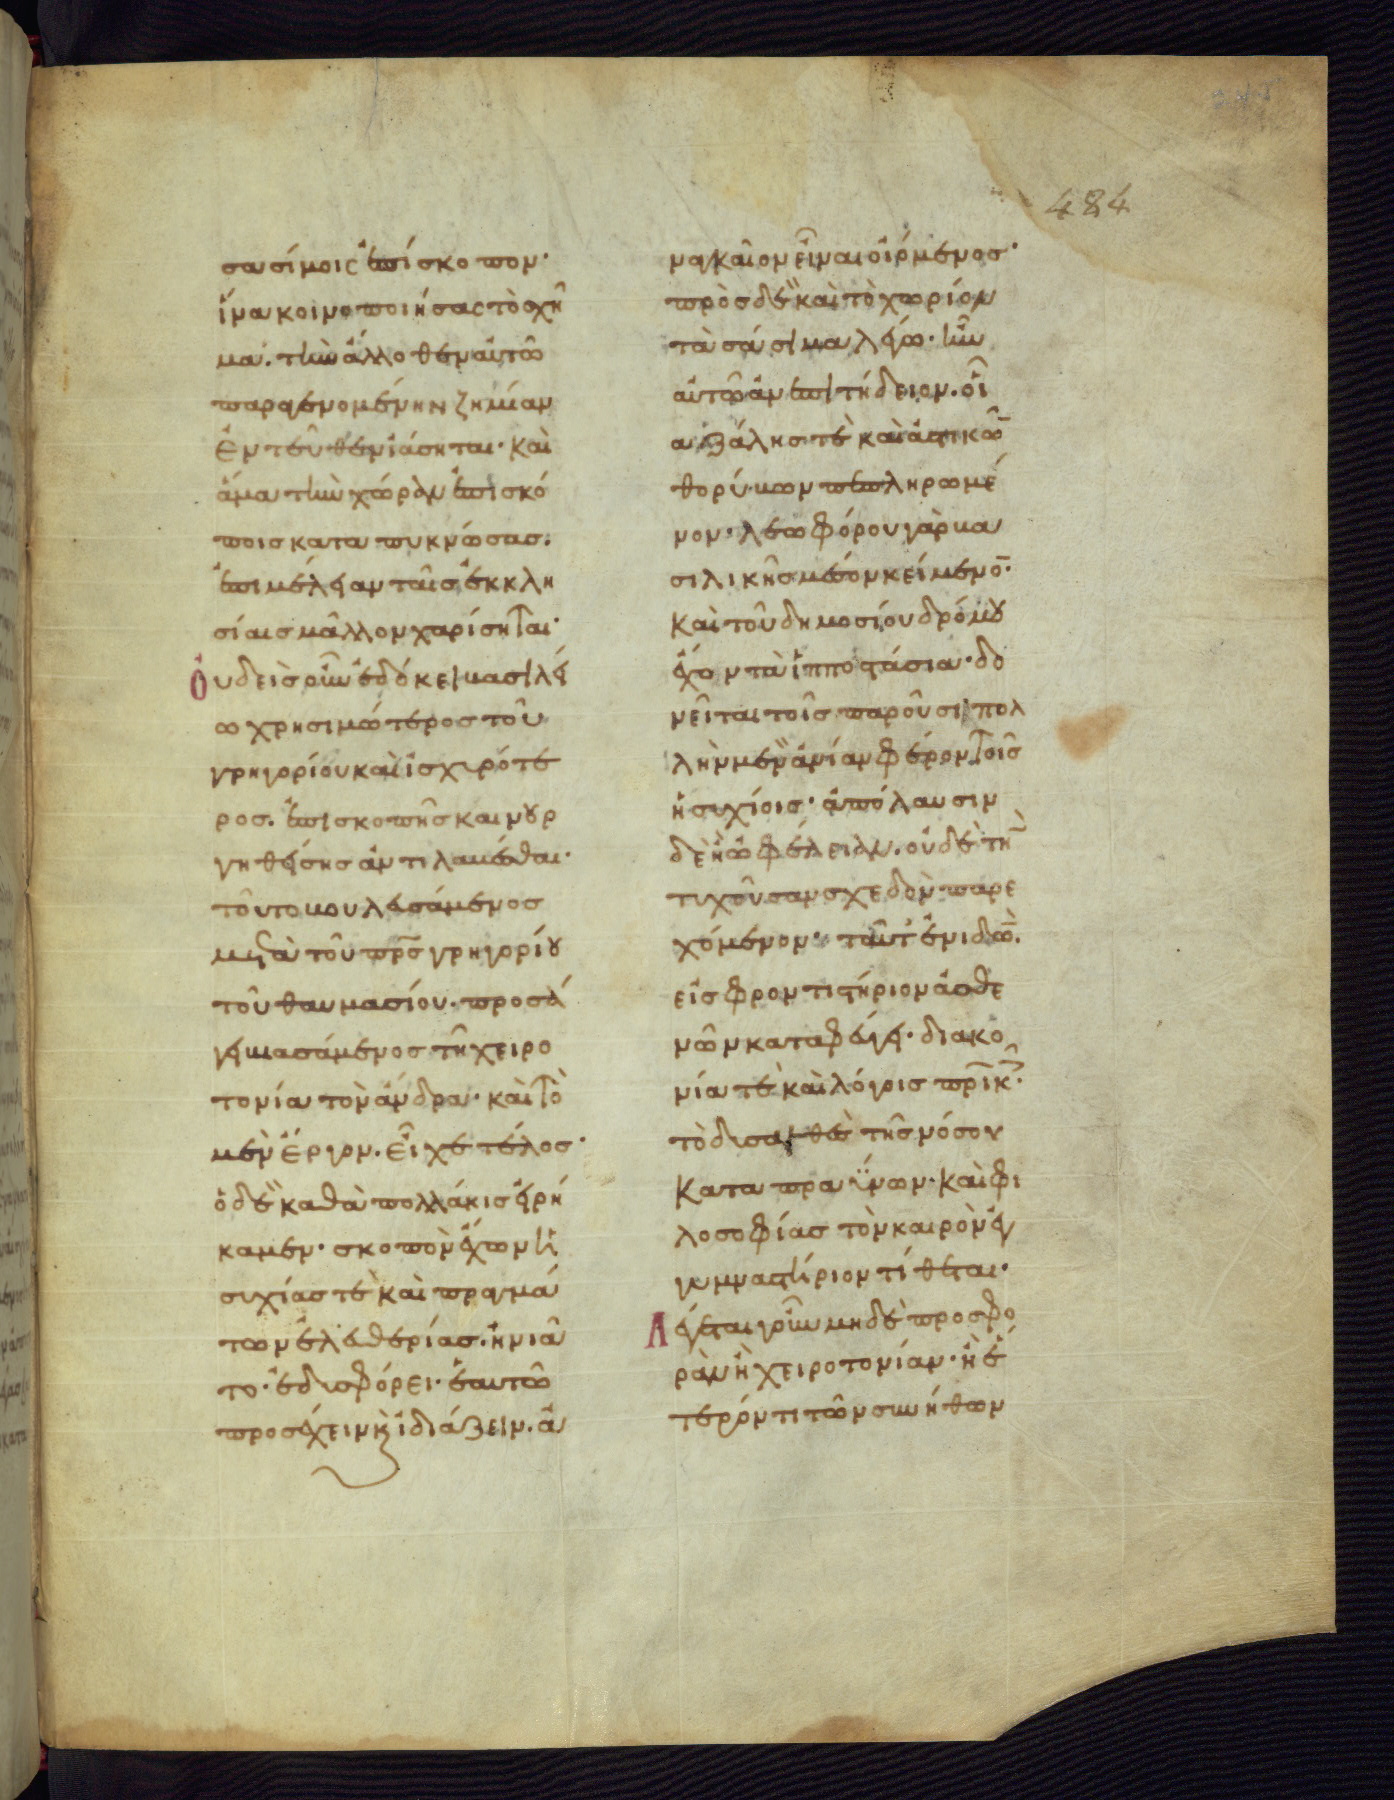 484
σασίμοις ἐπίσκοπον·
ἵνα κοινοποιήσας τὸ σχῆ
μα. τὴν ἄλλοθεν αὐτῶ
παραγενομένην ζημίαν
ἐντεῦθεν ἰάσηται· καὶ
ἅμα τὴν χώραν ἐπισκό
ποις καταπυκνώσας.
ἐπιμέλειαν ταῖς ἐκκλη
σίαις μᾶλλον χαρίσηται·
Οὐδεὶς οὖν ἐδόκει βασιλεί
ω χρησιμώτερος τοῦ
γρηγορίου καὶ ἰσχυρότε
ρος. ἐπισκοπῆς καινουρ
γηθείσης ἀντιλαβέσθαι·
τοῦτο βουλευσάμενος
μετὰ τοῦ πρς γρηγορίου
τοῦ θαυμασίου. προσά
γει βιασάμενος τῆ χειρο
τονία τὸν ἄνδρα· καὶ τὸ
μὲν ἔργον. εἶχε τέλος·
ὁ δὲ καθὰ πολλάκις εἰρή
καμεν· σκοπὸν ἔχων ἡ
συχίας τὲ καὶ πραγμά
των ἐλευθερίας. ἠνιᾶ
το· ἐδυσφόρει· ἑαυτῶ
προσέχειν κ ἰδιάζειν. ἀ
ναγκαῖον εἶναι οἰόμενος·
πρὸς δὲ καὶ τὸ χωρίον
τὰ σάσιμα λέγω· ἦν
αὐτῶ ἀνεπιτήδειον. οἷ
α ζάλης τὲ καὶ ἀστικῶ
θορύβων πεπληρωμέ
νον· λεωφόρου γὰρ βα
σιλικῆς μέσον κείμενο·
καὶ τοῦ δημοσίου δρόμου
ἔχον τὰ ἱπποστάσια· δο
νεῖται τοῖς παροῦσι· πολ
λὴν μὲν ἀνίαν φέρον τοῖς
ἡσυχίοις· ἀπόλαυσιν
δὲ ἢ ὠφέλειαν. οὐδὲ τὴ
τυχοῦσαν σχεδὸν παρε
χόμενον· ταῦτ' ἐνιδὼ.
εἰς φροντιστήριον ἀσθε
νῶν καταφεύγει· διακο
νία τὲ καὶ λόγοις πρικ·
τὸ δυσαχθὲς τῆς νόσου
καταπραΰνων· καὶ φι
λοσοφίας τὸν καιρὸν εἰς
γυμναστήριον τίθεται·
Λέγεται γοῦν μηδὲ προσφο
ρὰν ἢ χειροτονίαν· ἢ ἕ
τερόν τι τῶν συνήθων